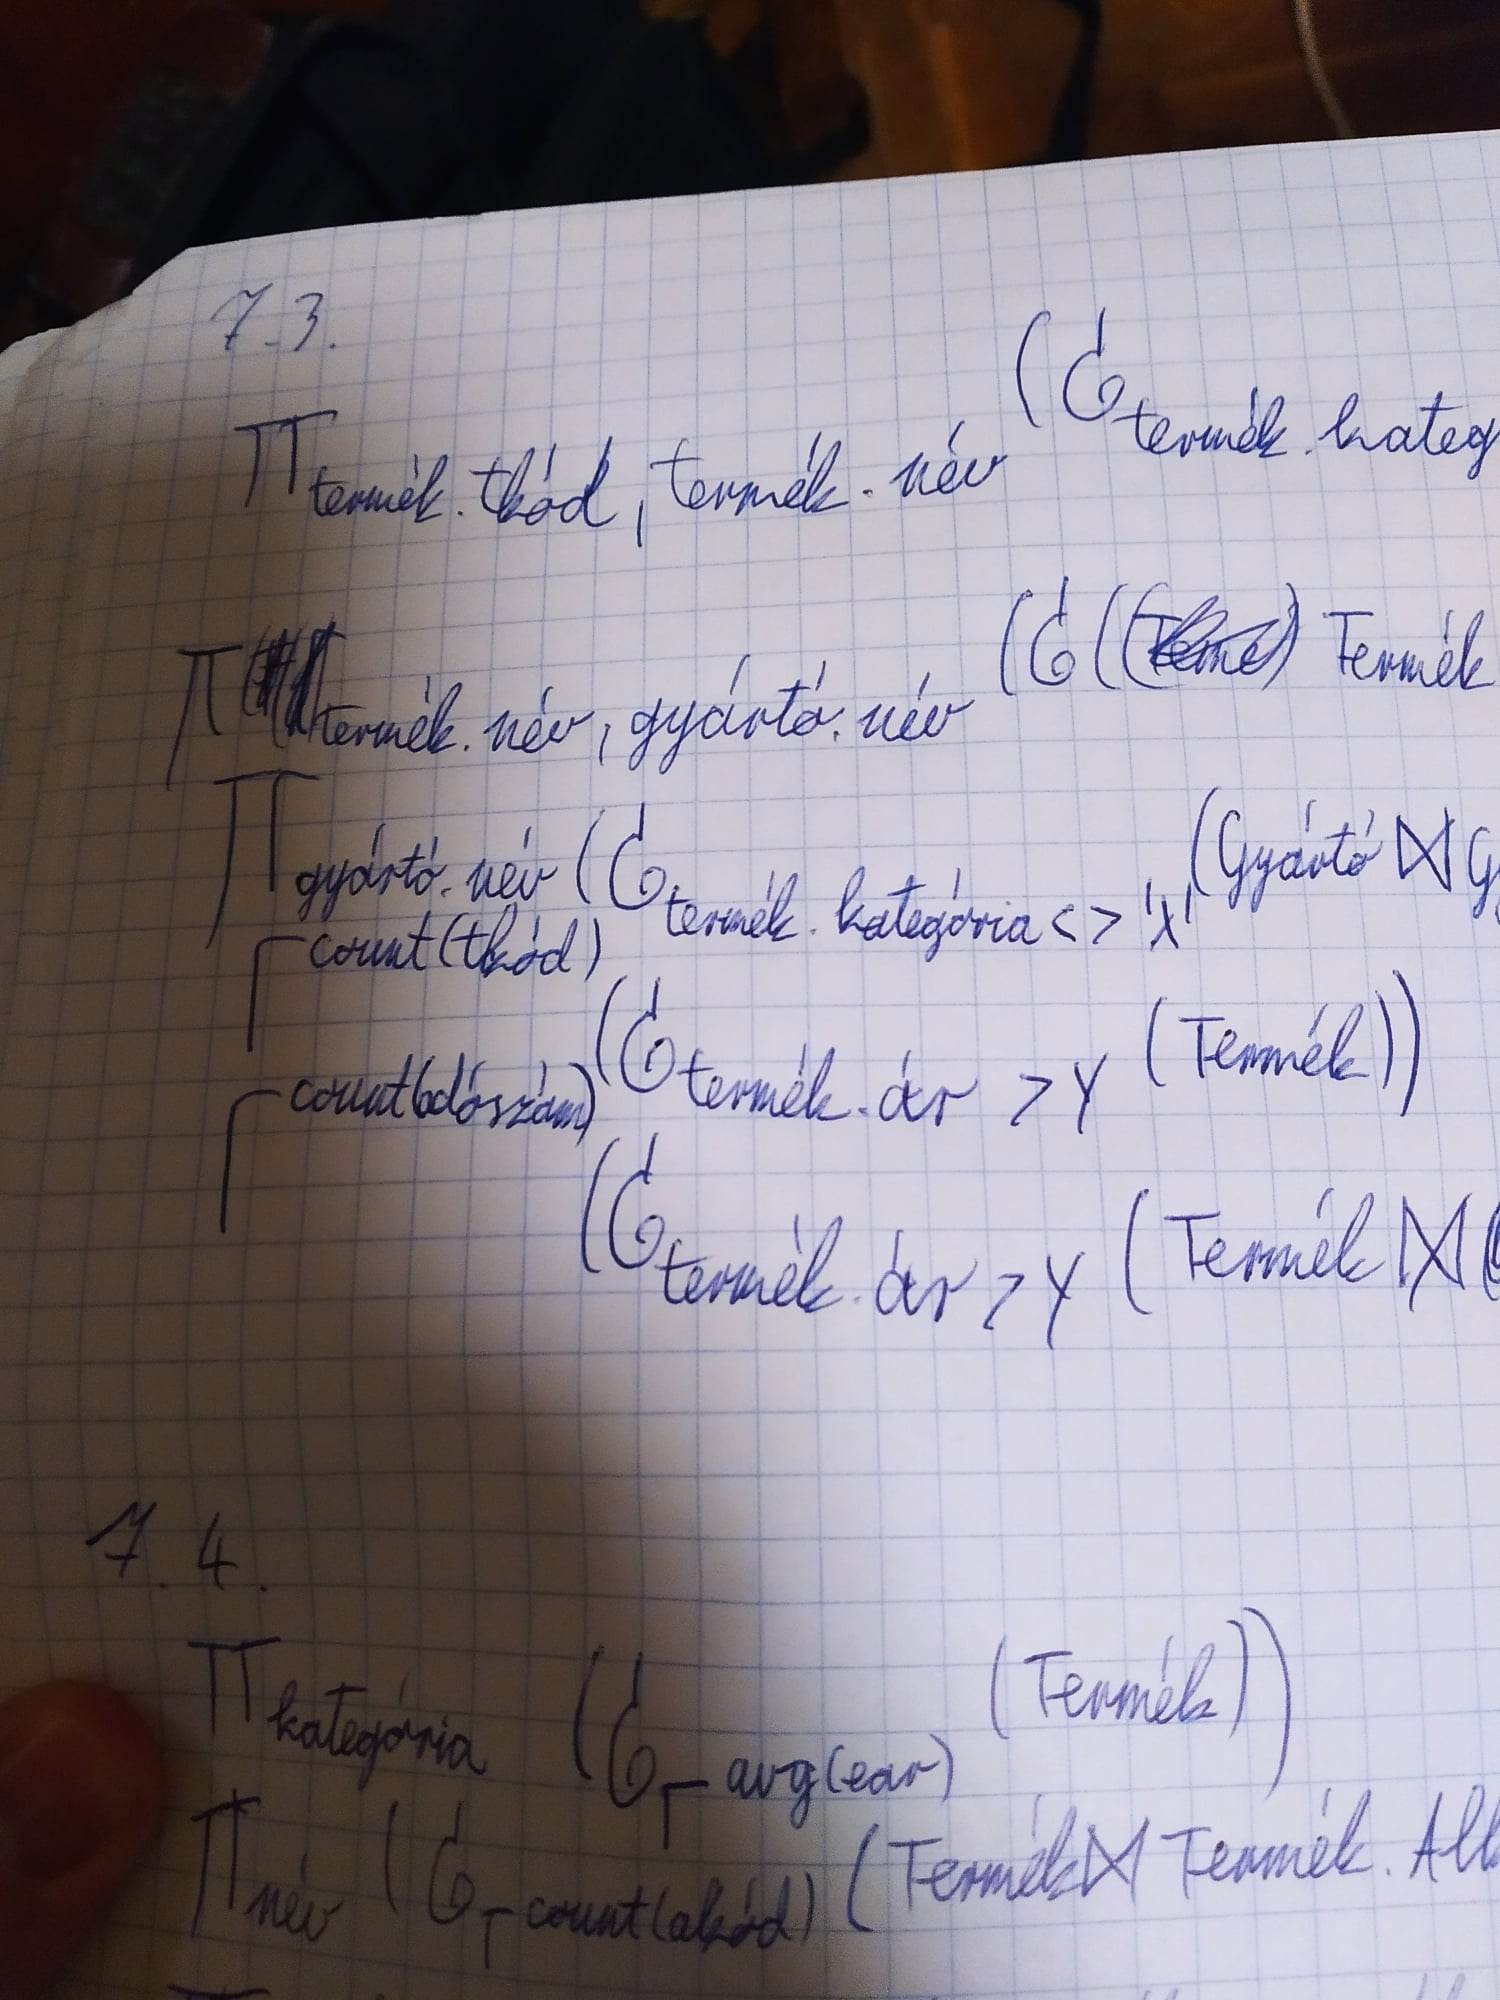 7.3.
π termék.tkód, termék.név (σ termék.kateg
π termék.név, gyártó.név (σ (Termék
π gyártó.név (σ termék.kategória <> 'X' (Gyártó ⋈ Gy
Γ count(tkód) (σ termék.ár > Y (Termék))
Γ count(adószám) (σ termék.ár > Y (Termék ⋈
7.4.
π kategória (σ Γ avg(ear) (Termék))
π név (σ Γ count(akód) (Termék ⋈ Termék.Alk